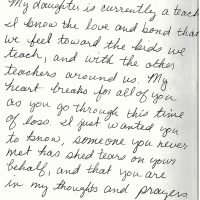 My daughter is currently a teach
I know the love and bond that
we feel toward the kids we
teach, and with the other
teachers around us. My
heart breaks for all of you
as you go through this time
of loss. I just wanted you
to know, someone you never
met has shed tears on your
behalf, and that you are
in my thoughts and prayers